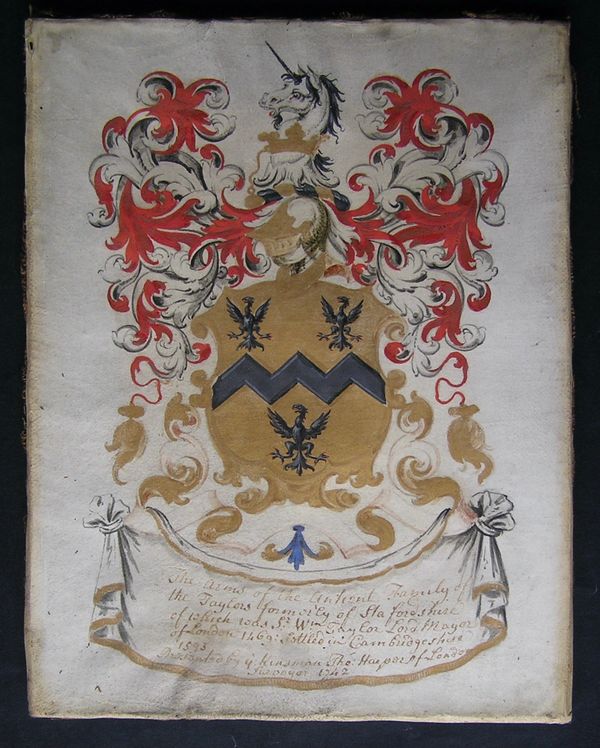 The Arms of the Antient Family of
the Taylors formerly of Staffordshire
of which was Sr. Wm Taylor Lord Mayor
of London 1469: Settled in Cambridgeshire
1593
Presented by yr kinsman Tho: Harper of London
Surveyor 1742